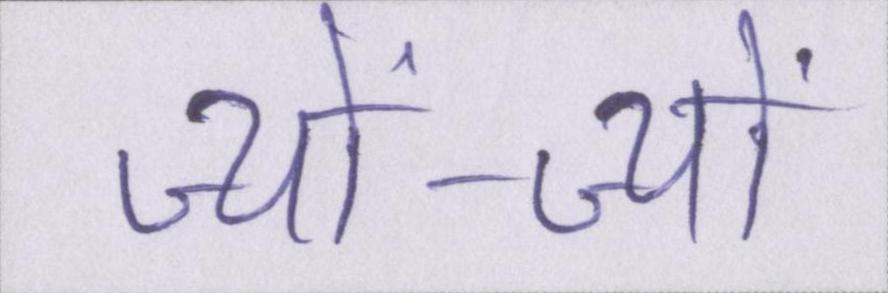 ज्यों-ज्यों